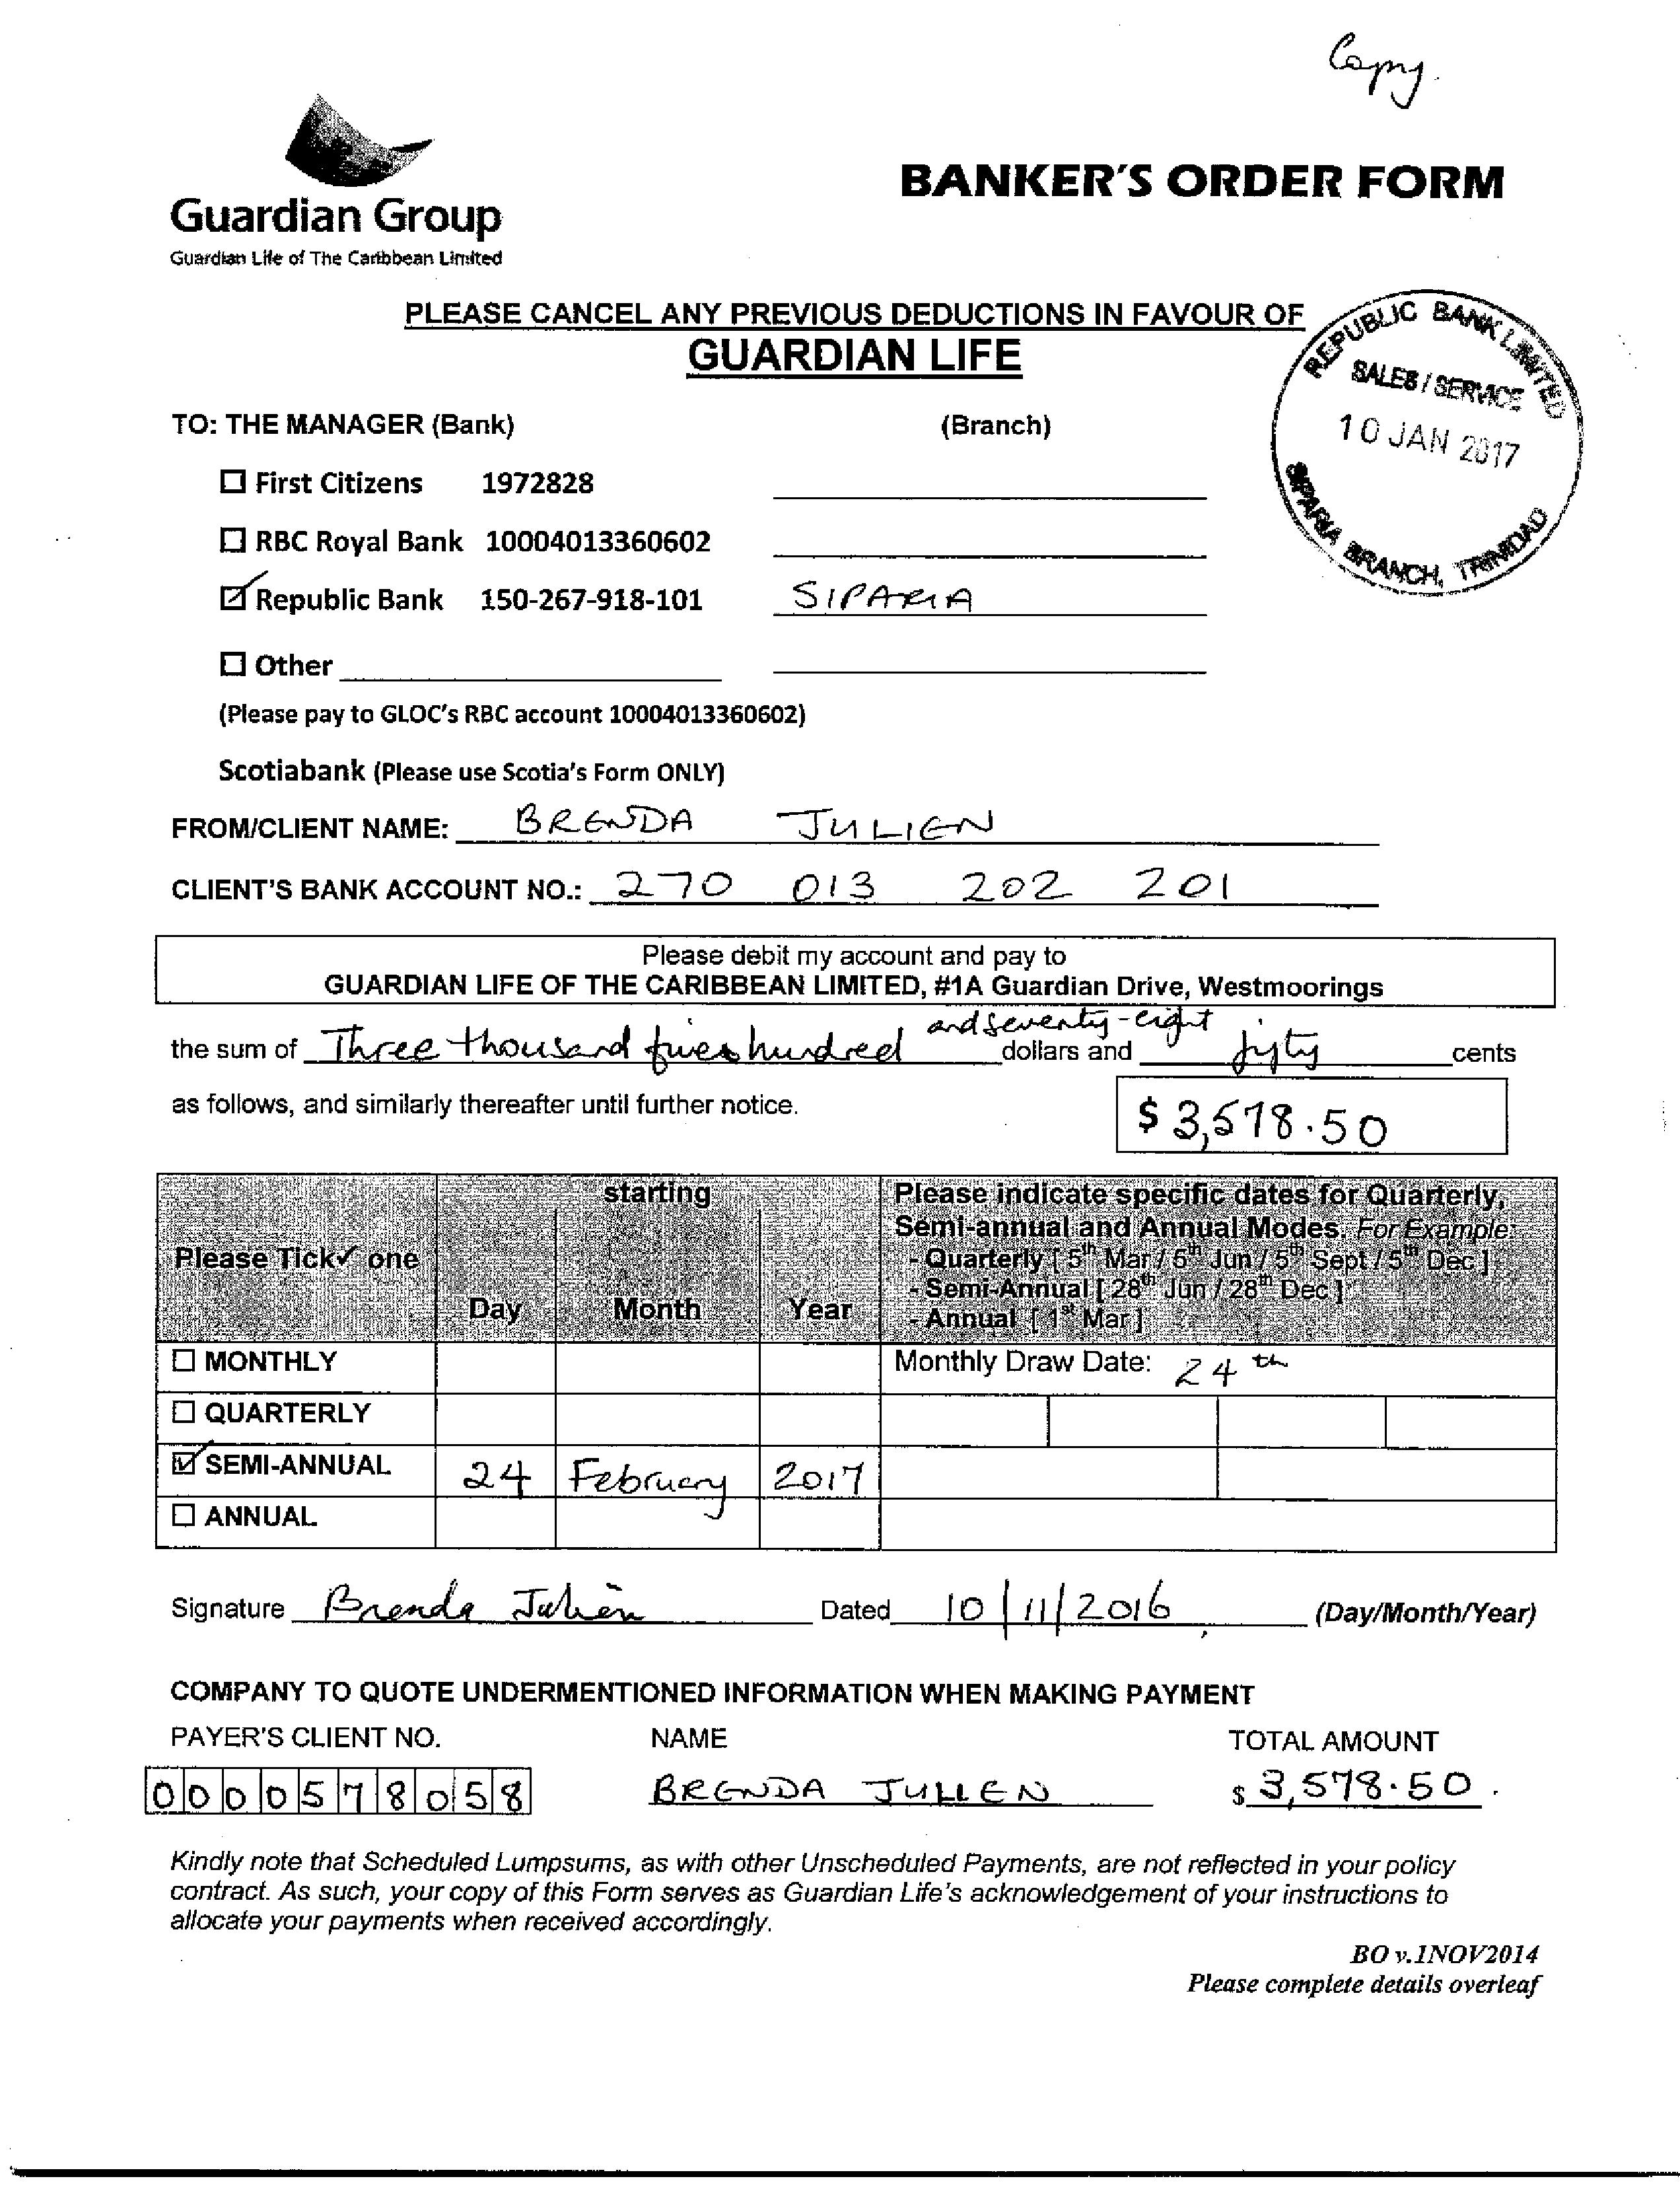 Copy.
Guardian Group
Guardian Life of The Caribbean Limited
BANKER'S ORDER FORM
PLEASE CANCEL ANY PREVIOUS DEDUCTIONS IN FAVOUR OF
GUARDIAN LIFE
REPUBLIC BANK LIMITED
SALES / SERVICE
10 JAN 2017
SIPARIA BRANCH, TRINIDAD
TO: THE MANAGER (Bank) (Branch)
☐ First Citizens 1972828
☐ RBC Royal Bank 10004013360602
☑ Republic Bank 150-267-918-101 SIPARIA
☐ Other
(Please pay to GLOC's RBC account 10004013360602)
Scotiabank (Please use Scotia's Form ONLY)
FROM/CLIENT NAME: BRENDA JULIEN
CLIENT'S BANK ACCOUNT NO.: 270 013 202 201
Please debit my account and pay to
GUARDIAN LIFE OF THE CARIBBEAN LIMITED, #1A Guardian Drive, Westmoorings
the sum of Three thousand five hundred and seventy-eight dollars and fifty cents
as follows, and similarly thereafter until further notice.
$ 3,578.50
Please Tick✓ one
starting
Day Month Year
Please indicate specific dates for Quarterly,
Semi-annual and Annual Modes. For Example:
- Quarterly [ 5th Mar / 5th Jun / 5th Sept / 5th Dec ]
- Semi-Annual [ 28th Jun / 28th Dec ]
- Annual [ 1st Mar ]
☐ MONTHLY Monthly Draw Date: 24th
☐ QUARTERLY
☑ SEMI-ANNUAL 24 February 2017
☐ ANNUAL
Signature Brenda Julien Dated 10/11/2016 (Day/Month/Year)
COMPANY TO QUOTE UNDERMENTIONED INFORMATION WHEN MAKING PAYMENT
PAYER'S CLIENT NO. NAME TOTAL AMOUNT
0000578058 BRENDA JULIEN $ 3,578.50.
Kindly note that Scheduled Lumpsums, as with other Unscheduled Payments, are not reflected in your policy
contract. As such, your copy of this Form serves as Guardian Life's acknowledgement of your instructions to
allocate your payments when received accordingly.
BO v.1NOV2014
Please complete details overleaf